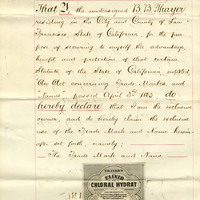 That I, the undersigned B. B. Thayer
residing in the City and County of San
Francisco State of California, for the pur
pose of securing to myself the advantage
benefit and protection of that certain
Statute of the State of California, entitled,
"An Act concerning Trade Marks and
Names", passed April 3rd 1863, do
hereby declare that I am the exclusive
owner, and do hereby claim the exclusive
use of the Trade Mark and Name herein
after set forth, namely;
The Trade Mark and Name
ELIXIR
CHLORAL HYDRAT